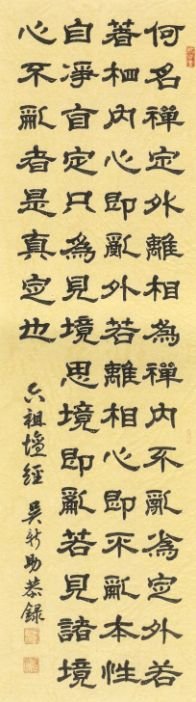 何名禪定外離相為禪內不亂為定外若
著相內心即亂外若離相心即不亂本性
自淨自定只為見境思境即亂若見諸境
心不亂者是真定也
六祖壇經 吳新恭錄